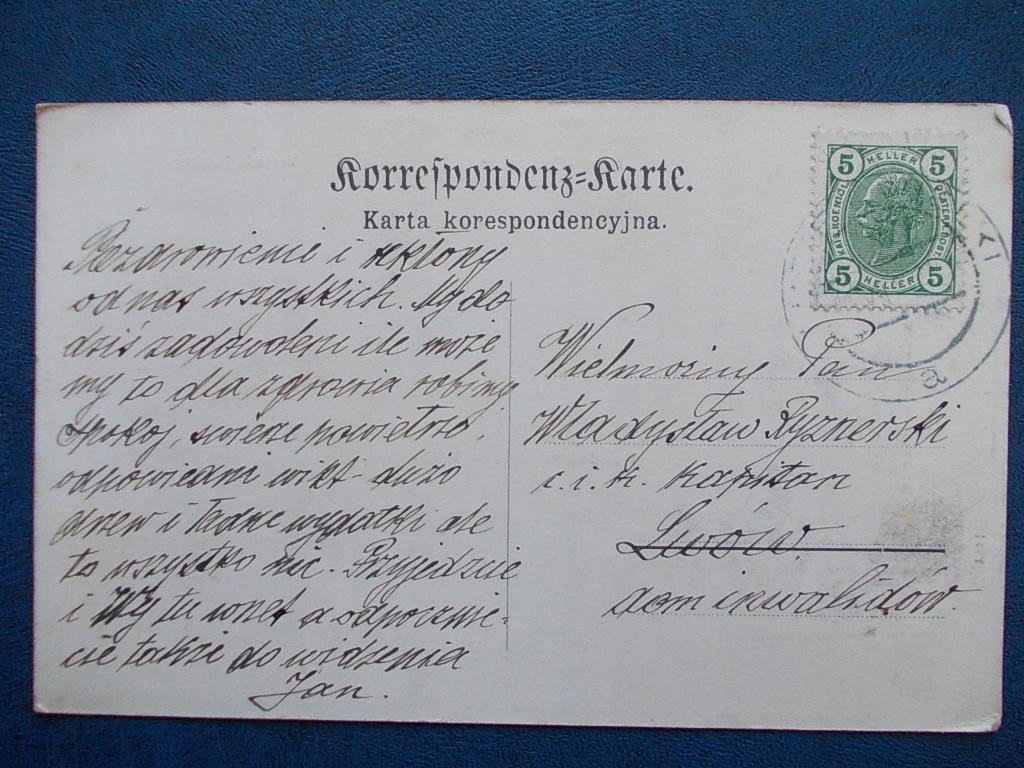 Korrespondenz-Karte.
Karta korespondencyjna.
5 HELLER 5
KAIS. KOENIGL. OESTERR. POST.
5 HELLER 5
Pozdrowienie i ukłony
od nas wszystkich. My do
dziś zadowoleni ile może
my to dla zdrowia robimy
spokój, świeże powietrze,
odpowiedni wikt - dużo
drzew i ładne wydatki ale
to wszystko nic. Przyjedzcie
i Wy tu wnet a odpocznie-
cie także do widzenia
Jan.
Wielmożny Pan
Władysław Ryznerski
c. i. k. Kapitan
Lwów.
dom inwalidów.